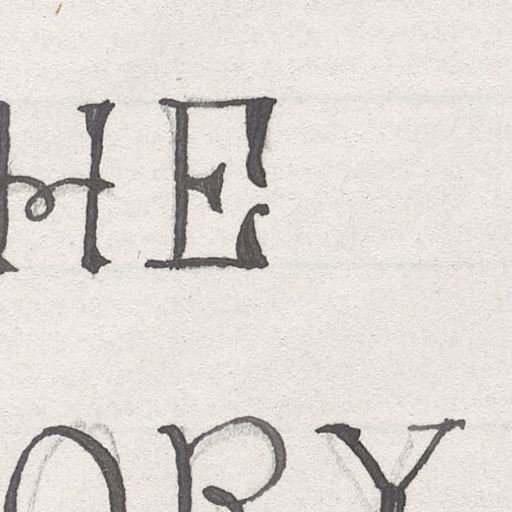 HE
ORY